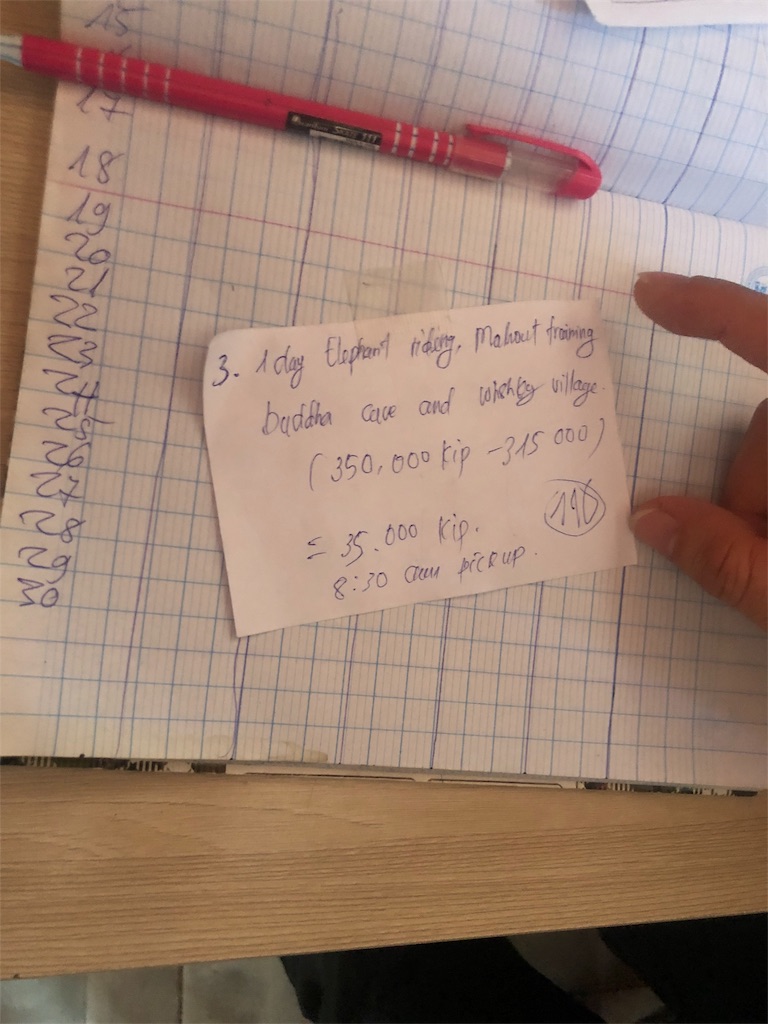 15
17
18
19
20
21
22
23
24
25
26
27
28
29
30
3. 1 day Elephant riding. Mahout training
buddha cave and whisky village.
(350,000 kip - 315 000)
= 35.000 kip.
8:30 am pick up.